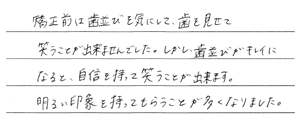 矯正前は歯並びを気にして、歯を見せて
笑うことが出来ませんでした。しかし歯並びがキレイに
なると、自信を持って笑うことが出来ます。
明るい印象を持ってもらうことが多くなりました。